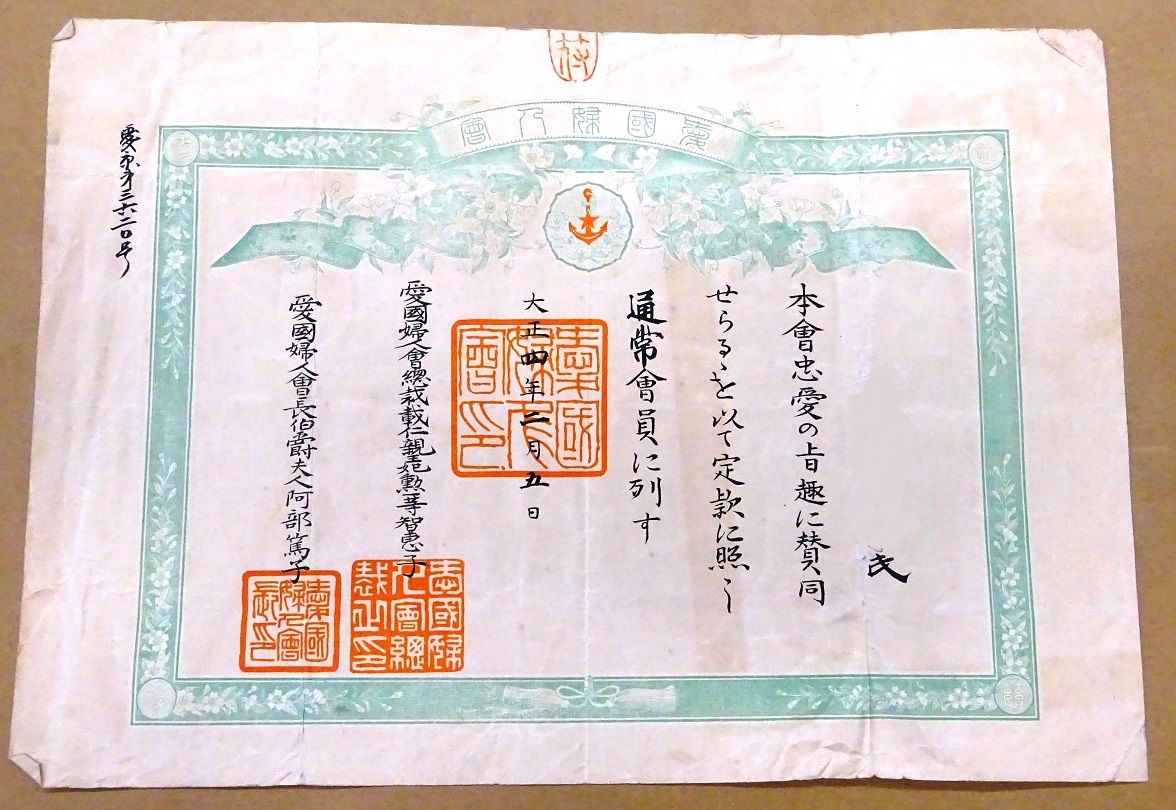 愛國婦人會
氏
本會忠愛の旨趣に賛同
せらるゝを以て定款に照し
通常會員に列す
大正四年二月五日
愛國婦人會印
愛國婦人會總裁載仁親王妃勲一等智恵子
愛國婦人會總裁之印
愛國婦人會長伯爵夫人阿部篤子
愛國婦人會長印
第三六二〇号